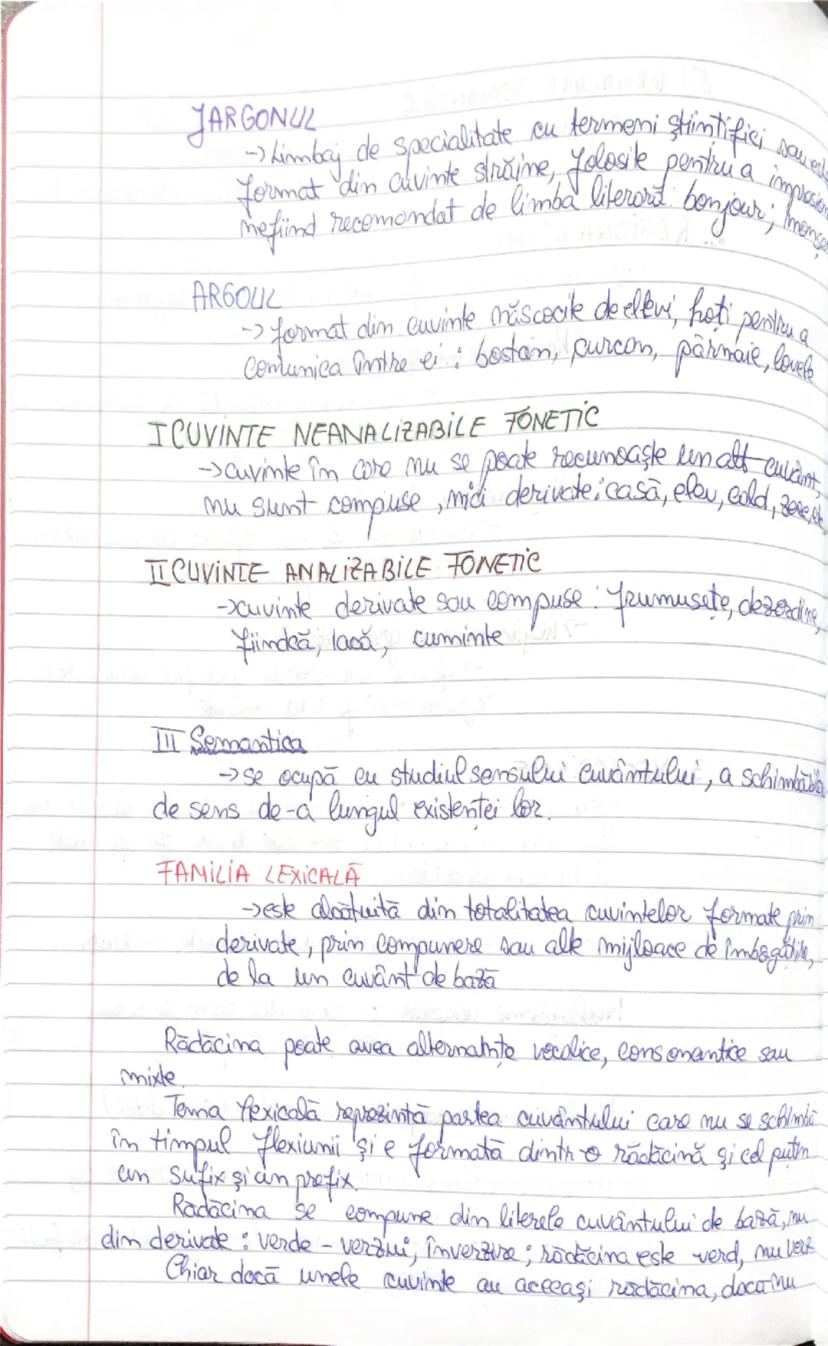 JARGONUL
→ Limbaj de specialitate cu termeni ştiintifici sau
format din cuvinte străine, folosite pentru a
nefiind recomandat de limba literară: bonjour;
ARGOUL
→ format din cuvinte născocite de elevi, hoți pentru a
comunica între ei: bostan, curcan, pârnaie, lovele
I CUVINTE NEANALIZABILE FONETIC
→ cuvinte în care nu se poate recunoaşte un alt cuvânt,
nu sunt compuse, nici derivate: casă, elev, cald,
II CUVINTE ANALIZABILE FONETIC
→ cuvinte derivate sau compuse: frumusețe, dezordine,
fiindcă, iacă, cuminte
III Semantica
→ se ocupă cu studiul sensului cuvântului, a
de sens de-a lungul existenței lor.
FAMILIA LEXICALĂ
→ este alcătuită din totalitatea cuvintelor formate prin
derivate, prin compunere sau alte mijloace de
de la un cuvânt de bază
Rădăcina poate avea vocalice, consonantice sau
mixte.
Tema flexicală reprezintă partea cuvântului care nu se schimbă
în timpul flexiunii și e formată dintr-o rădăcină și cel puțin
un sufix și un prefix.
Radăcina se compune din literele cuvântului de bază, nu
din derivate: verde - verzui, înverzire; rădăcina este verd, nu verz
Chiar dacă unele cuvinte au aceeași rădăcina, dacă nu